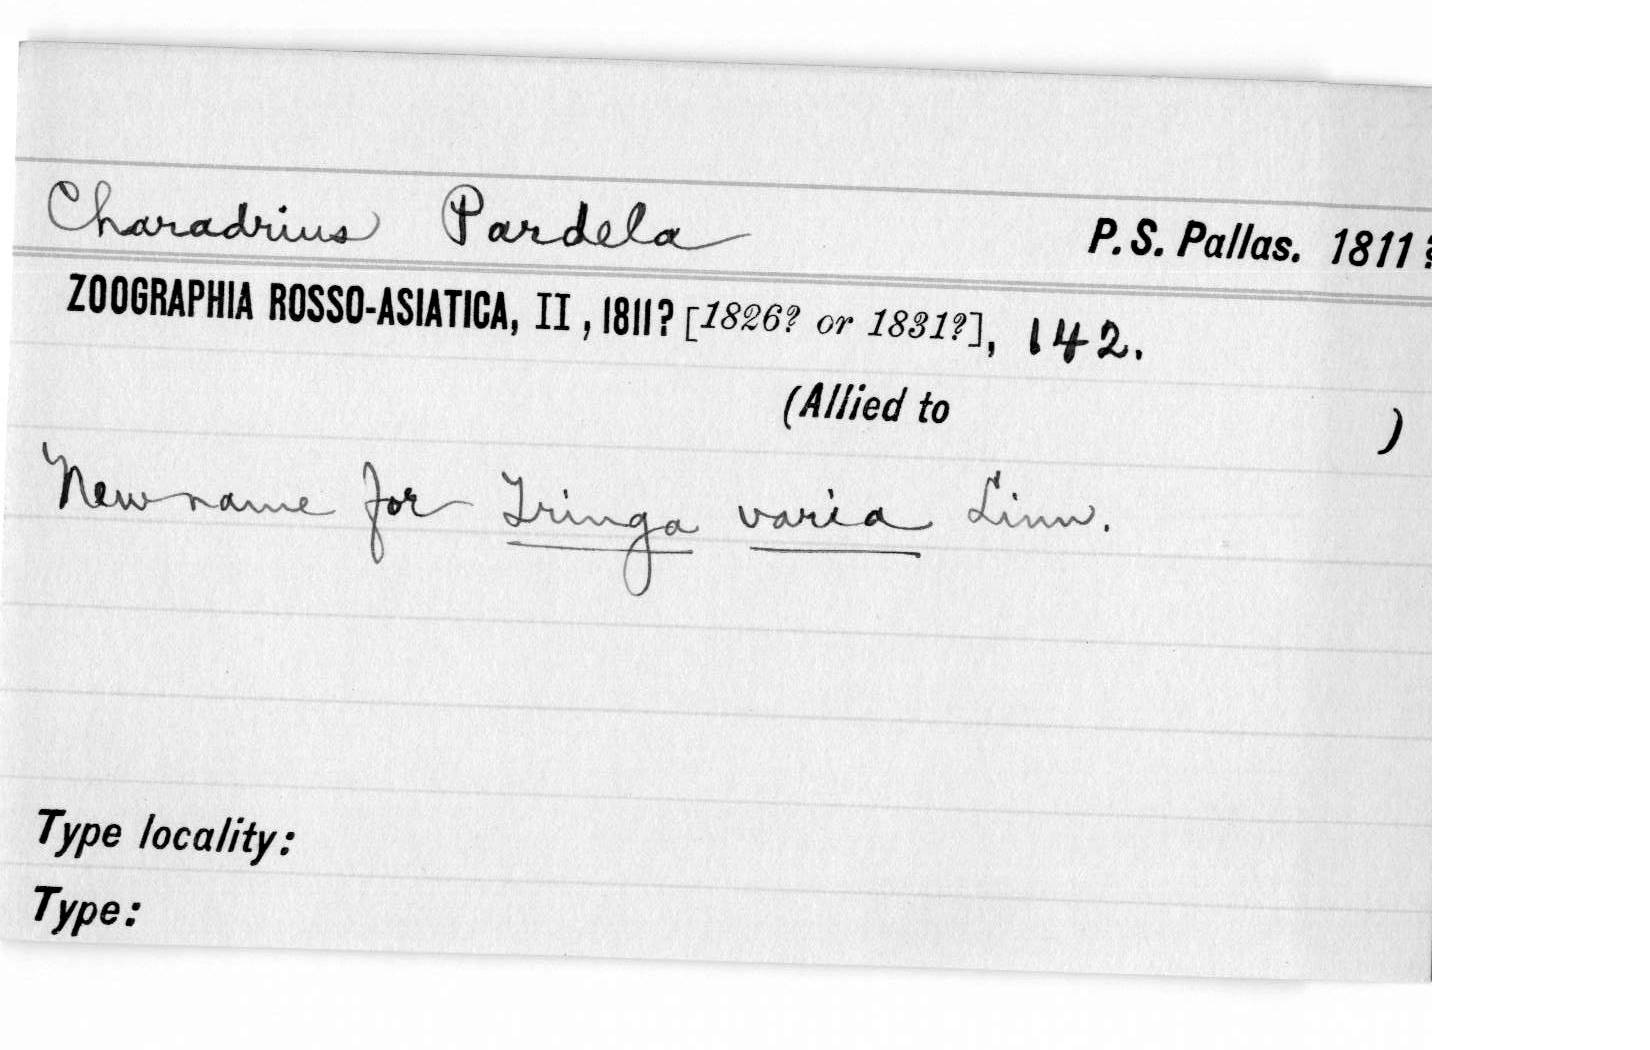 Charadrius Pardela P. S. Pallas. 1811?
ZOOGRAPHIA ROSSO-ASIATICA, II, 1811? [1826? or 1831?], 142.
(Allied to )
New name for Tringa varia Linn.
Type locality:
Type: